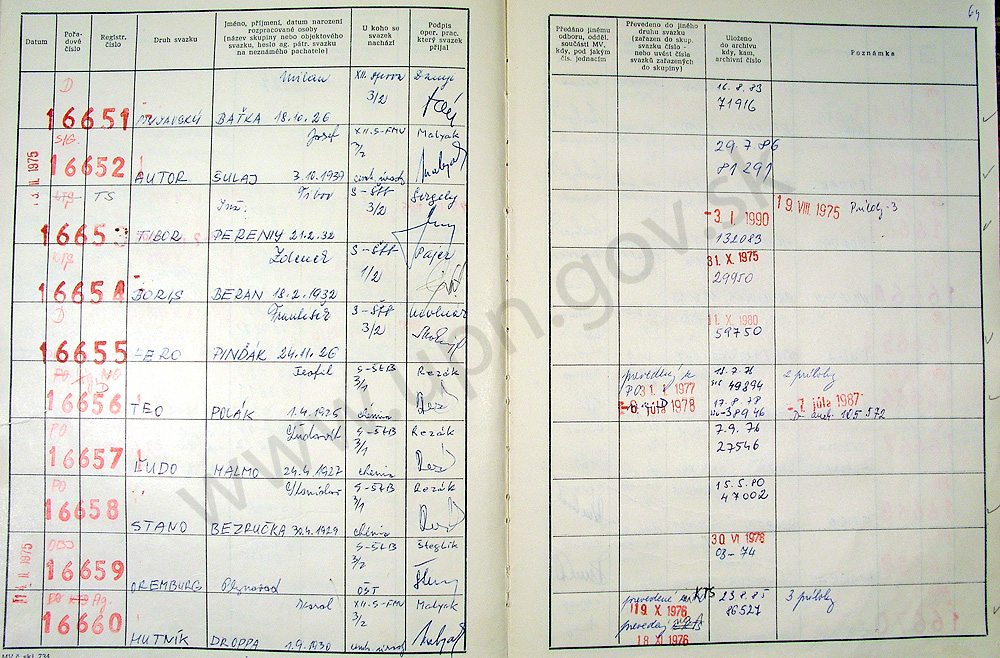 64
Datum
Pořadové číslo
Registr. číslo
Druh svazku
Jméno, příjmení, datum narození rozpracované osoby (název skupiny nebo objektového svazku, heslo ag. pátr. svazku na neznámého pachatele)
U koho se svazek nachází
Podpis oper. prac. který svazek přijal
Předáno jinému odboru, odděl. součásti MV, kdy, pod jakým čís. jednacím
Převedeno do jiného druhu svazku (zařazen do skup. svazku číslo - nebo uvést čísla svazků zařazených do skupiny)
Uloženo do archivu kdy, kam, archivní číslo
Poznámka
D Milan XII. správa
3/2
16651 MYJAVSKÝ BAŤKA 18.10.26
16.8.83
71916
Josef XII.S-FMV Malyak
16652 AUTOR ŠULAJ 3.10.1939
29.7.86
81291
TS Tibor S-ŠtB Gergely
Inž. 3/2
16653 TIBOR PERENIY 21.2.32
-3. I 1990 19. VIII. 1975 Prílohy-3
132083
Zdenek S-ŠtB Pajer
1/2
16654 BORIS BERAN 18.2.1932
31. X. 1975
29950
D František S-ŠtB
3/2
16655 FERO PINĎÁK 24.11.26
11. X. 1980
59750
Teofil S-StB Rezák
3/1
16656 TEO POLÁK 1.4.1925 chémia
31. I 1977
-8. júla 1978
18.7.76
49894
17.8.78
38946
2 prílohy
-7. júla 1987
PO Ľudovít S-StB Rezák
3/1
16657 ĽUDO MALMO 24.4.1927 chémia
7.9.76
27546
PO Stanislav S-StB Rezák
3/1
16658 STANO BEZRUČKA 30.4.1929 chémia
15.5.80
47002
S-StB Šteglik
3/2
16659 OREMBURG Plynovod OŠT
30 VI 1976
03-74
Ag. Karol XII.S-FMV Malyak
3/2
16660 HUTNÍK DROPPA 1.9.1930
prevedené KTS
19. X. 1976
18 XI. 1976
23.8.85
86527
3 prílohy
www.upn.gov.sk